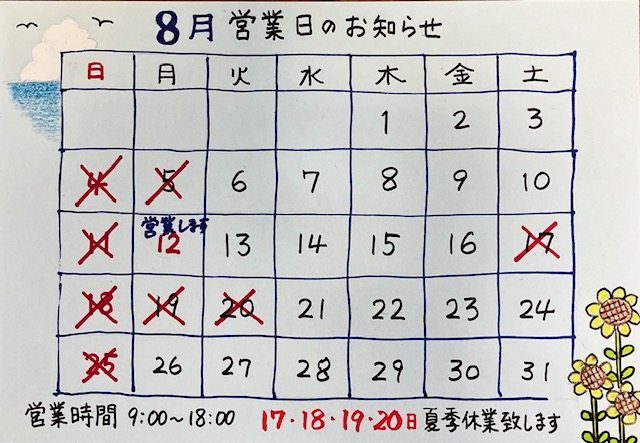 8月 営業日のお知らせ
日 月 火 水 木 金 土
1 2 3
4 5 6 7 8 9 10
営業します
11 12 13 14 15 16 17
18 19 20 21 22 23 24
25 26 27 28 29 30 31
営業時間 9:00～18:00 17・18・19・20日 夏季休業致します